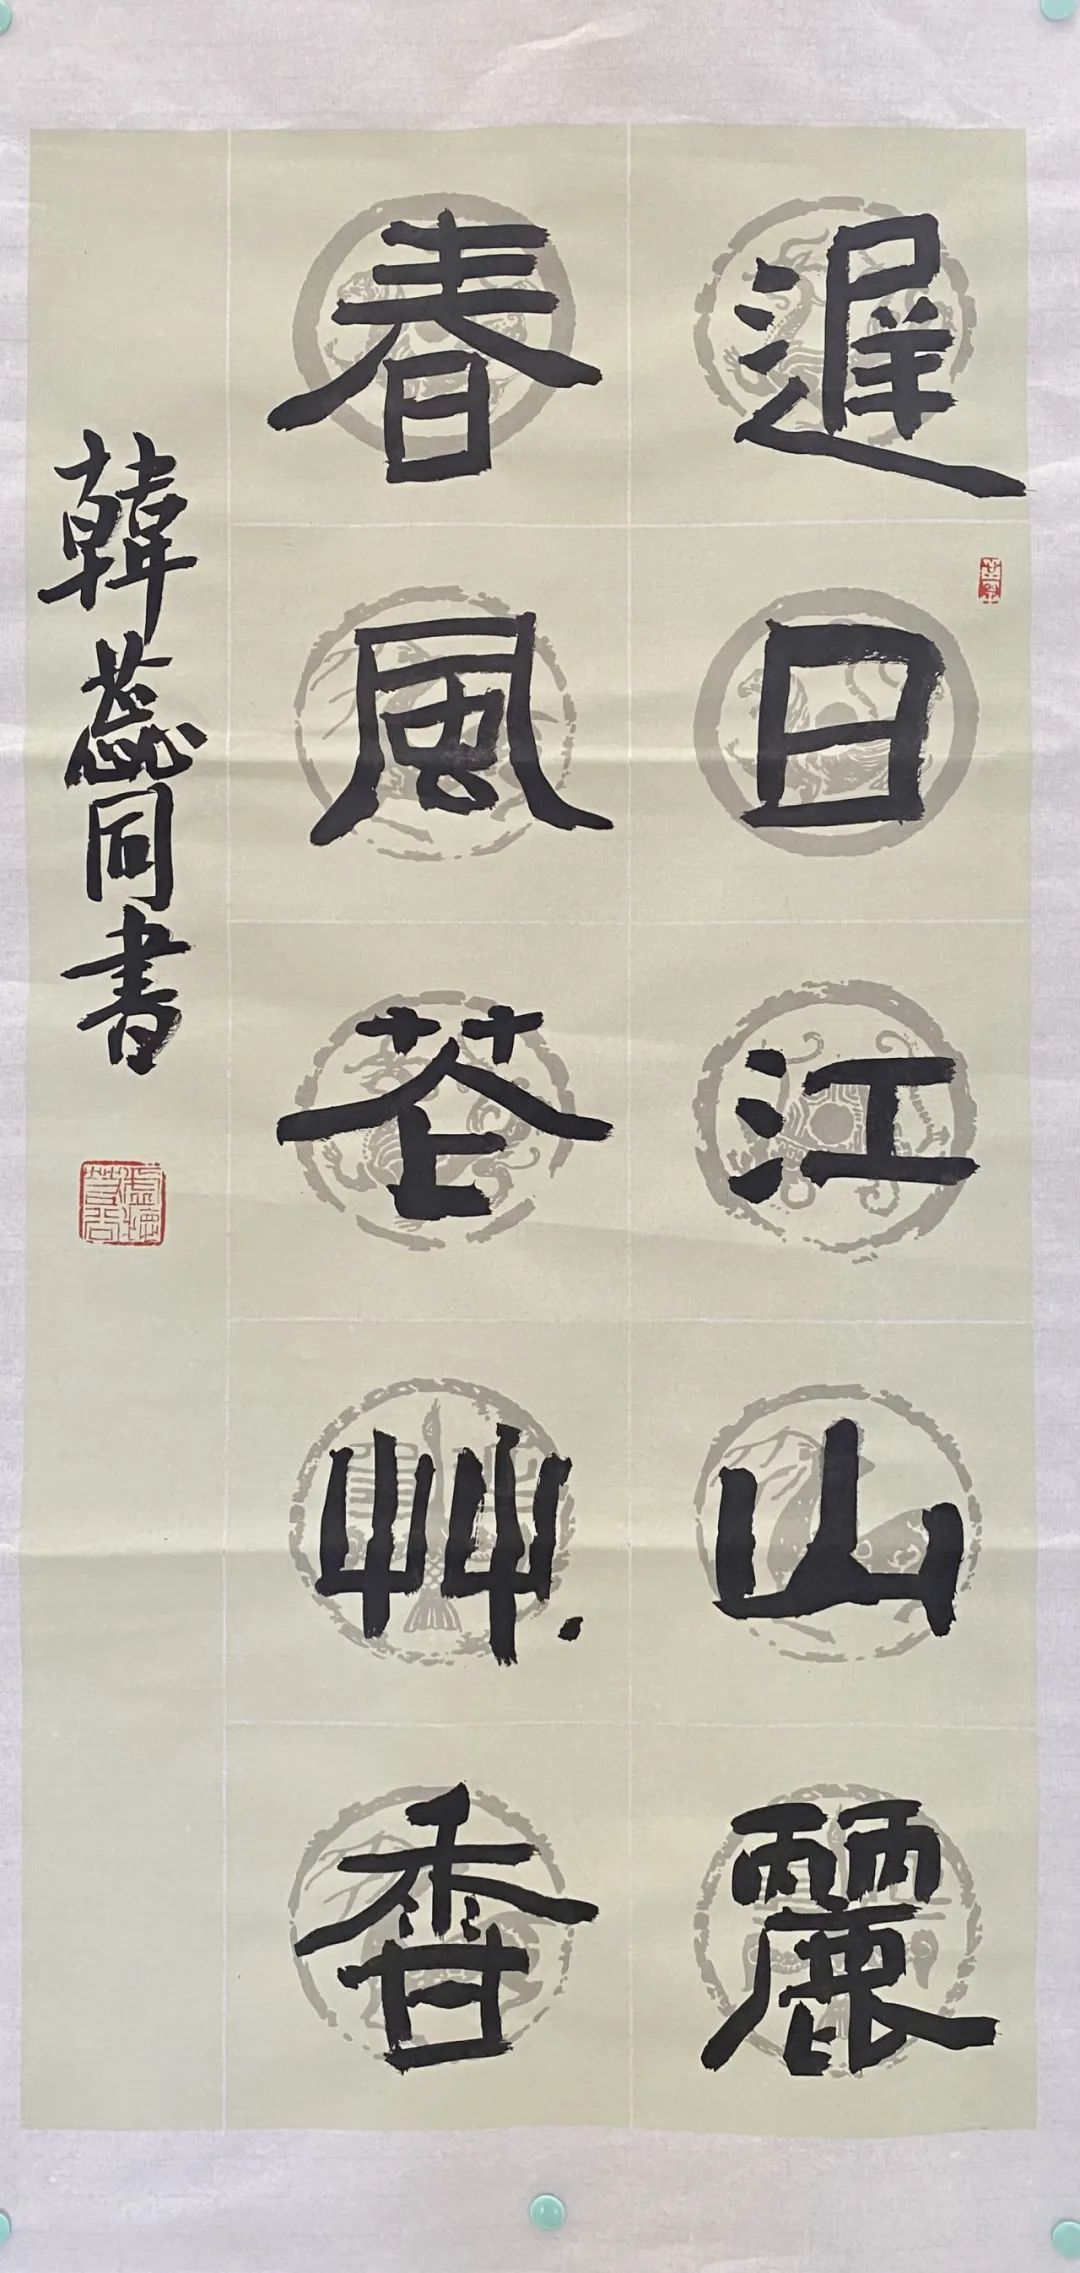 遲日江山麗
春風花艸香
韓蕊同書